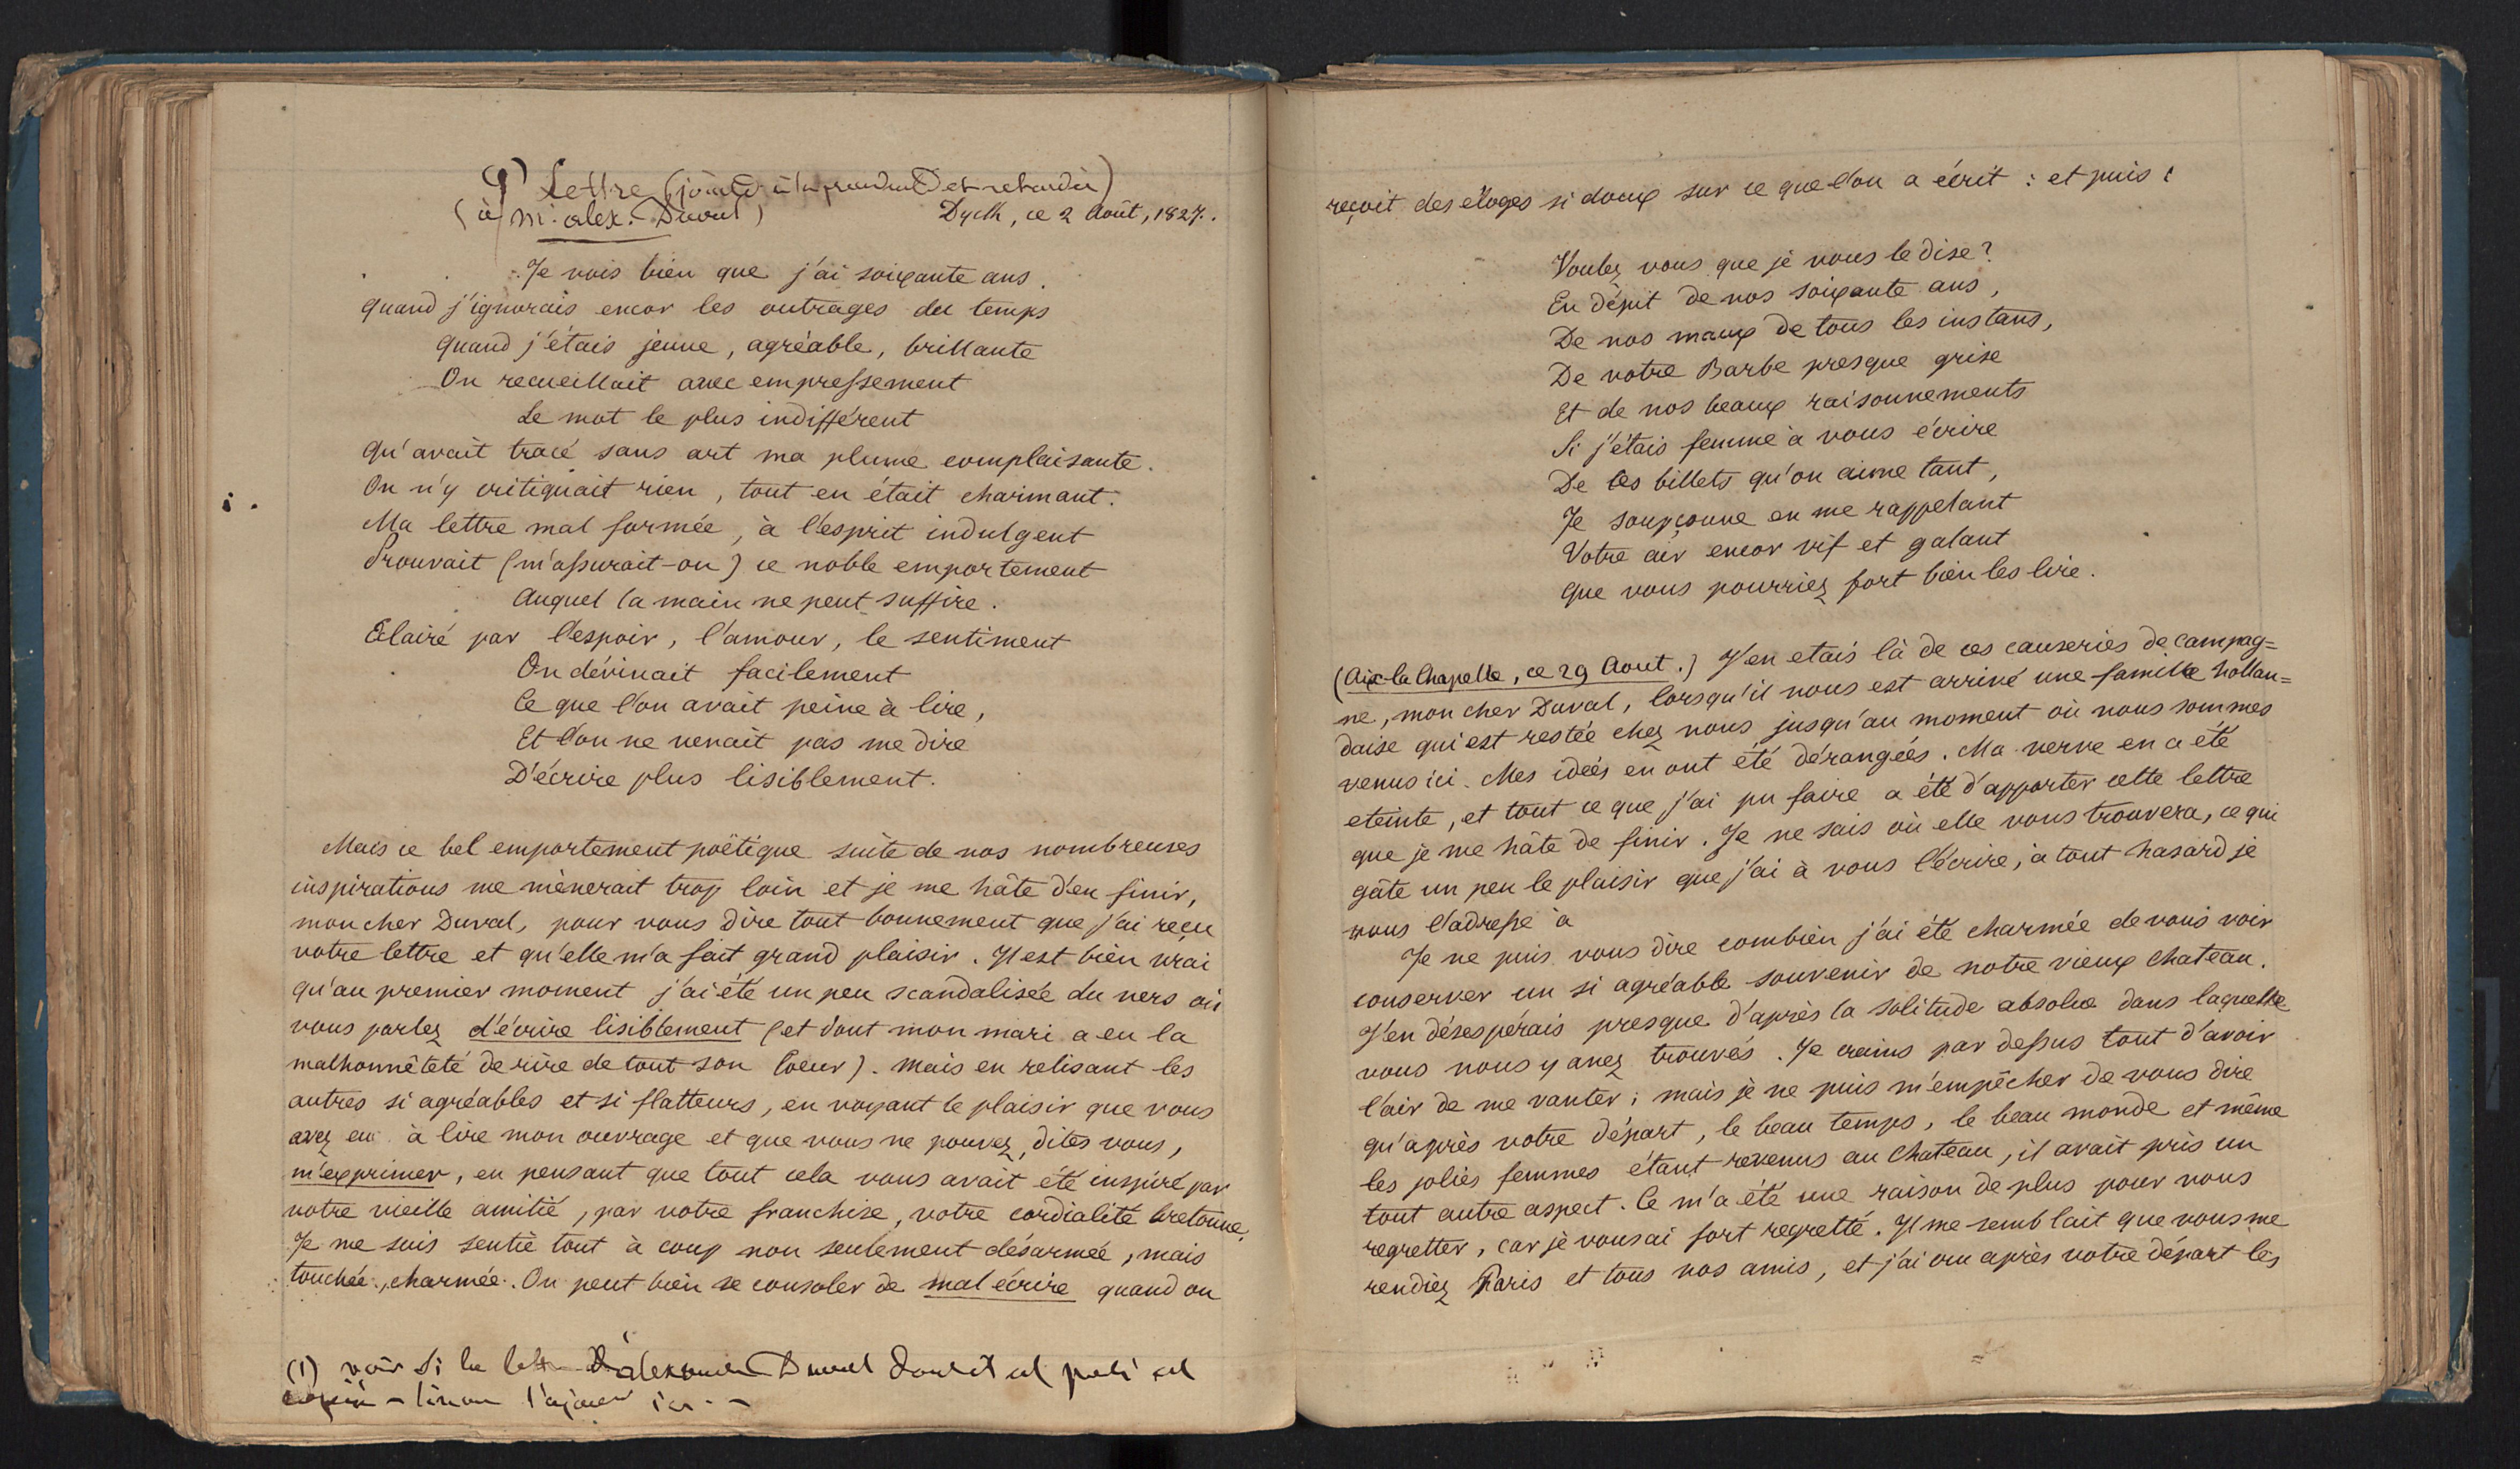 9) Lettre (jointe à la précédente et retardée)
(à M. alex. Duval) Dyck, ce 2 Août, 1827.
Je vois bien que j'ai soixante ans.
quand j'ignorais encor les outrages du temps
quand j'étais jeune, agréable, brillante
On recueillait avec empressement
Le mot le plus indifférent
Qu'avait tracé sans art ma plume complaisante.
On n'y critiquait rien, tout en était charmant.
Ma lettre mal formée, à l'esprit indulgent
Prouvait (m'assurait-on) ce noble emportement
Auquel la main ne peut suffire.
Eclairé par l'espoir, l'amour, le sentiment
On dévinait facilement
Ce que l'on avait peine à lire,
Et l'on ne venait pas me dire
D'écrire plus lisiblement.
Mais ce bel emportement poëtique suite de nos nombreuses
inspirations me mènerait trop loin et je me hâte d'en finir,
mon cher Duval, pour vous dire tout bonnement que j'ai reçu
votre lettre et qu'elle m'a fait grand plaisir. Il est bien vrai
qu'au premier moment j'ai été un peu scandalisée du vers où
vous parlez d'écrire lisiblement (et dont mon mari a eu la
malhonnêteté de rire de tout son Coeur). Mais en relisant les
autres si agréables et si flatteurs, en voyant le plaisir que vous
avez eu à lire mon ouvrage et que vous ne pouvez, dites vous,
m'exprimer, en pensant que tout cela vous avait été inspiré par
votre vieille amitié, par votre franchise, votre cordialité bretonne,
Je me suis sentie tout à coup non seulement désarmée, mais
touchée, charmée. On peut bien se consoler de mal écrire quand on
(1) voir si la lettre d'alexandre Duval
copiée - sinon l'ajouter ici
reçoit des éloges si doux sur ce que l'on a écrit : et puis :
Voulez vous que je vous le dise?
En dépit de nos soixante ans,
De nos maux de tous les instans,
De votre Barbe presque grise
Et de nos beaux raisonnements
Si j'étais femme à vous écrire
De ces billets qu'on aime tant,
Je soupçonne en me rappelant
Votre air encor vif et galant
Que vous pourriez fort bien les lire.
(Aix-la Chapelle, ce 29 Aout.) J'en etais là de ces causeries de campag=
ne, mon cher Duval, lorsqu'il nous est arrivé une famille hollan=
daise qui est restée chez nous jusqu'au moment où nous sommes
venus ici. Mes idées en ont été dérangées. Ma verve en a été
eteinte, et tout ce que j'ai pu faire a été d'apporter cette lettre
que je me hâte de finir. Je ne sais où elle vous trouvera, ce qui
gâte un peu le plaisir que j'ai à vous l'écrire; à tout hasard je
vous l'adresse à
Je ne puis vous dire combien j'ai été charmée de vous voir
conserver un si agréable souvenir de notre vieux chateau.
J'en désespérais presque d'après la solitude absolue dans laquelle
vous nous y avez trouvés. Je crains par dessus tout d'avoir
l'air de me vanter; mais je ne puis m'empêcher de vous dire
qu'après votre départ, le beau temps, le beau monde et même
les jolies femmes étant revenus au chateau, il avait pris un
tout autre aspect. Ce m'a été une raison de plus pour vous
regretter, car je vous ai fort regretté. Il me semblait que vous me
rendiez Paris et tous nos amis, et j'ai cru après votre départ les